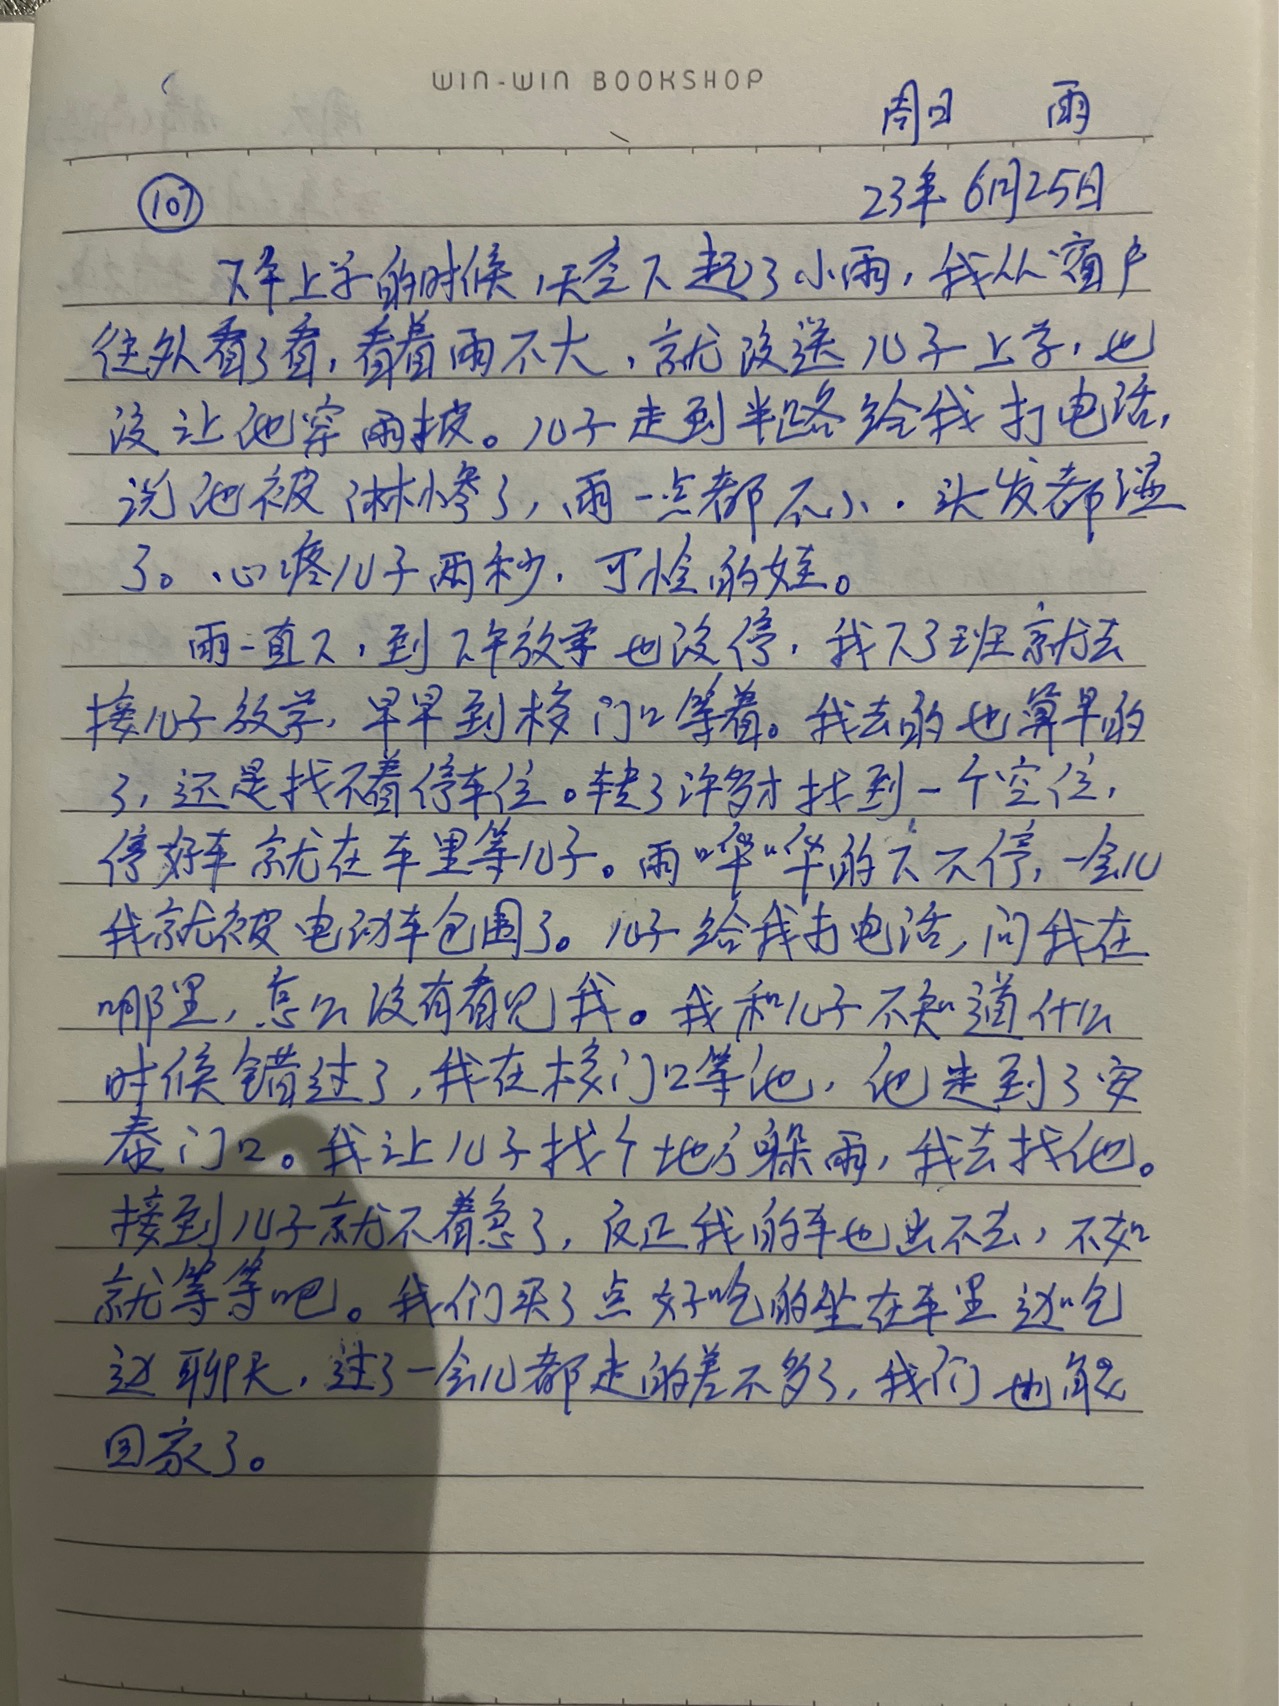 WIN-WIN BOOKSHOP
周日 雨
107 23年6月25日
下午上学的时候,天空下起了小雨,我从窗户
往外看了看,看着雨不大,就没送儿子上学,也
没让他穿雨披。儿子走到半路给我打电话,
说他被淋惨了,雨一点都不小.头发都湿
了。心疼儿子两秒,可怜的娃。
雨一直下,到下午放学也没停,我下了班就去
接儿子放学,早早到校门口等着。我去的也算早的
了,还是找不着停车位。转了许多才找到一个空位,
停好车就在车里等儿子。雨哗哗的下不停,一会儿
我就被电动车包围了。儿子给我打电话,问我在
哪里,怎么没有看见我。我和儿子不知道什么
时候错过了,我在校门口等他,他走到了安
泰门口。我让儿子找个地方躲雨,我去找他。
接到儿子就不着急了,反正我的车也出不去,不如
就等等吧。我们买了点好吃的坐在车里边吃
边聊天,过了一会儿都走的差不多了,我们也能
回家了。